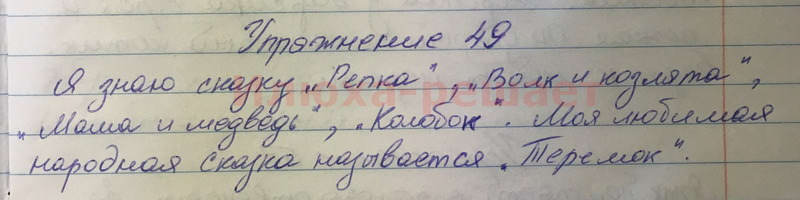 Упражнение 49
Я знаю сказку „Репка", „Волк и козлята",
„Маша и медведь", „Колобок". Моя любимая
народная сказка называется „Теремок".